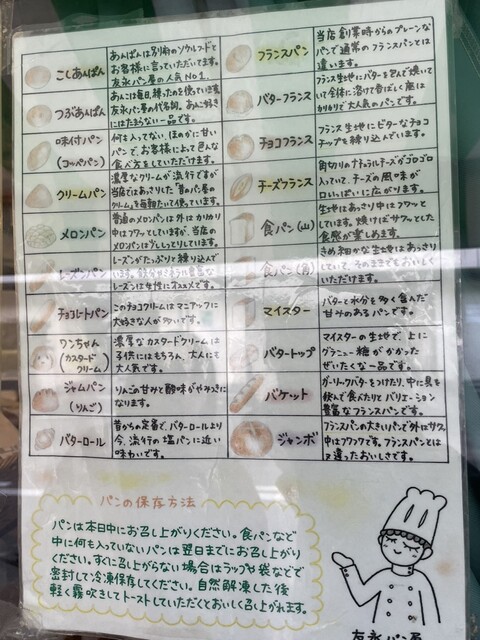 こしあんぱん
あんぱんは別府のソウルフードと
お客様に言っていただいてます。
友永パン屋の人気No.1.
つぶあんぱん
あんこは毎日、練ったのを使っています。
友永パン屋の代名詞。あんこ好き
にはたまらない一品です。
味付パン
(コッペパン)
何も入ってない、ほのかに甘い
パンで、お客様によって色んな
食べ方をしていただけます。
クリームパン
濃厚なクリームが流行ですが
当店ではあっさりした「昔のパン屋の
クリーム」を毎朝たいて使っています。
メロンパン
普通のメロンパンは外はカリカリ
中はフワッとしていますが、当店の
メロンパンは少ししっとりしています。
レーズンパン
レーズンがたっぷりと練り込んで
レーズンは女性にオススメです。
チョコレートパン
このチョコクリームはマニアックに
大好きな人が多いです。
ワンちゃん
(カスタード
クリーム)
濃厚なカスタードクリームは
子供にはもちろん、大人にも
大人気です。
ジャムパン
(りんご)
りんごの甘みと酸味がやみつきに
なります。
バターロール
昔からの定番で、バターロールより
今、流行の塩パンに近い
味わいです。
フランスパン
当店創業時からのプレーンな
パンで通常のフランスパンとは
違います。
バターフランス
フランス生地にバターを包んで焼いて
いて全体に溶けて香ばしく底は
カリカリで大人気のパンです。
チョコフランス
フランス生地にビターなチョコ
チップを練り込んでいます。
チーズフランス
角切りのナチュラルチーズがゴロゴロ
入っていて、チーズの風味が
口いっぱいに広がります。
食パン(山)
生地はあっさり中はフワッと
しています。焼けばサクッとした
食感が楽しめます。
食パン(角)
きめ細かな生地はあっさり
していて、そのままでもおいしく
いただけます。
マイスター
バターと水分を多く含んだ
甘みのあるパンです。
バタートップ
マイスターの生地で、上に
グラニュー糖がかかった
ぜいたくな一品です。
バケット
ガーリックバターをつけたり、中に具を
挟んで食べたりとバリエーション
豊富なフランスパンです。
ジャンボ
フランスパンの大きいパンで外はサクッ
中はフワフワです。フランスパンとは
又違ったおいしさです。
パンの保存方法
パンは本日中にお召し上がりください。食パンなど
中に何も入っていないパンは翌日までにお召し上がり
ください。すぐに召し上がらない場合はラップや袋などで
密封して冷凍保存してください。自然解凍した後
軽く霧吹きしてトーストしていただくとおいしく召し上がれます。
友永パン屋